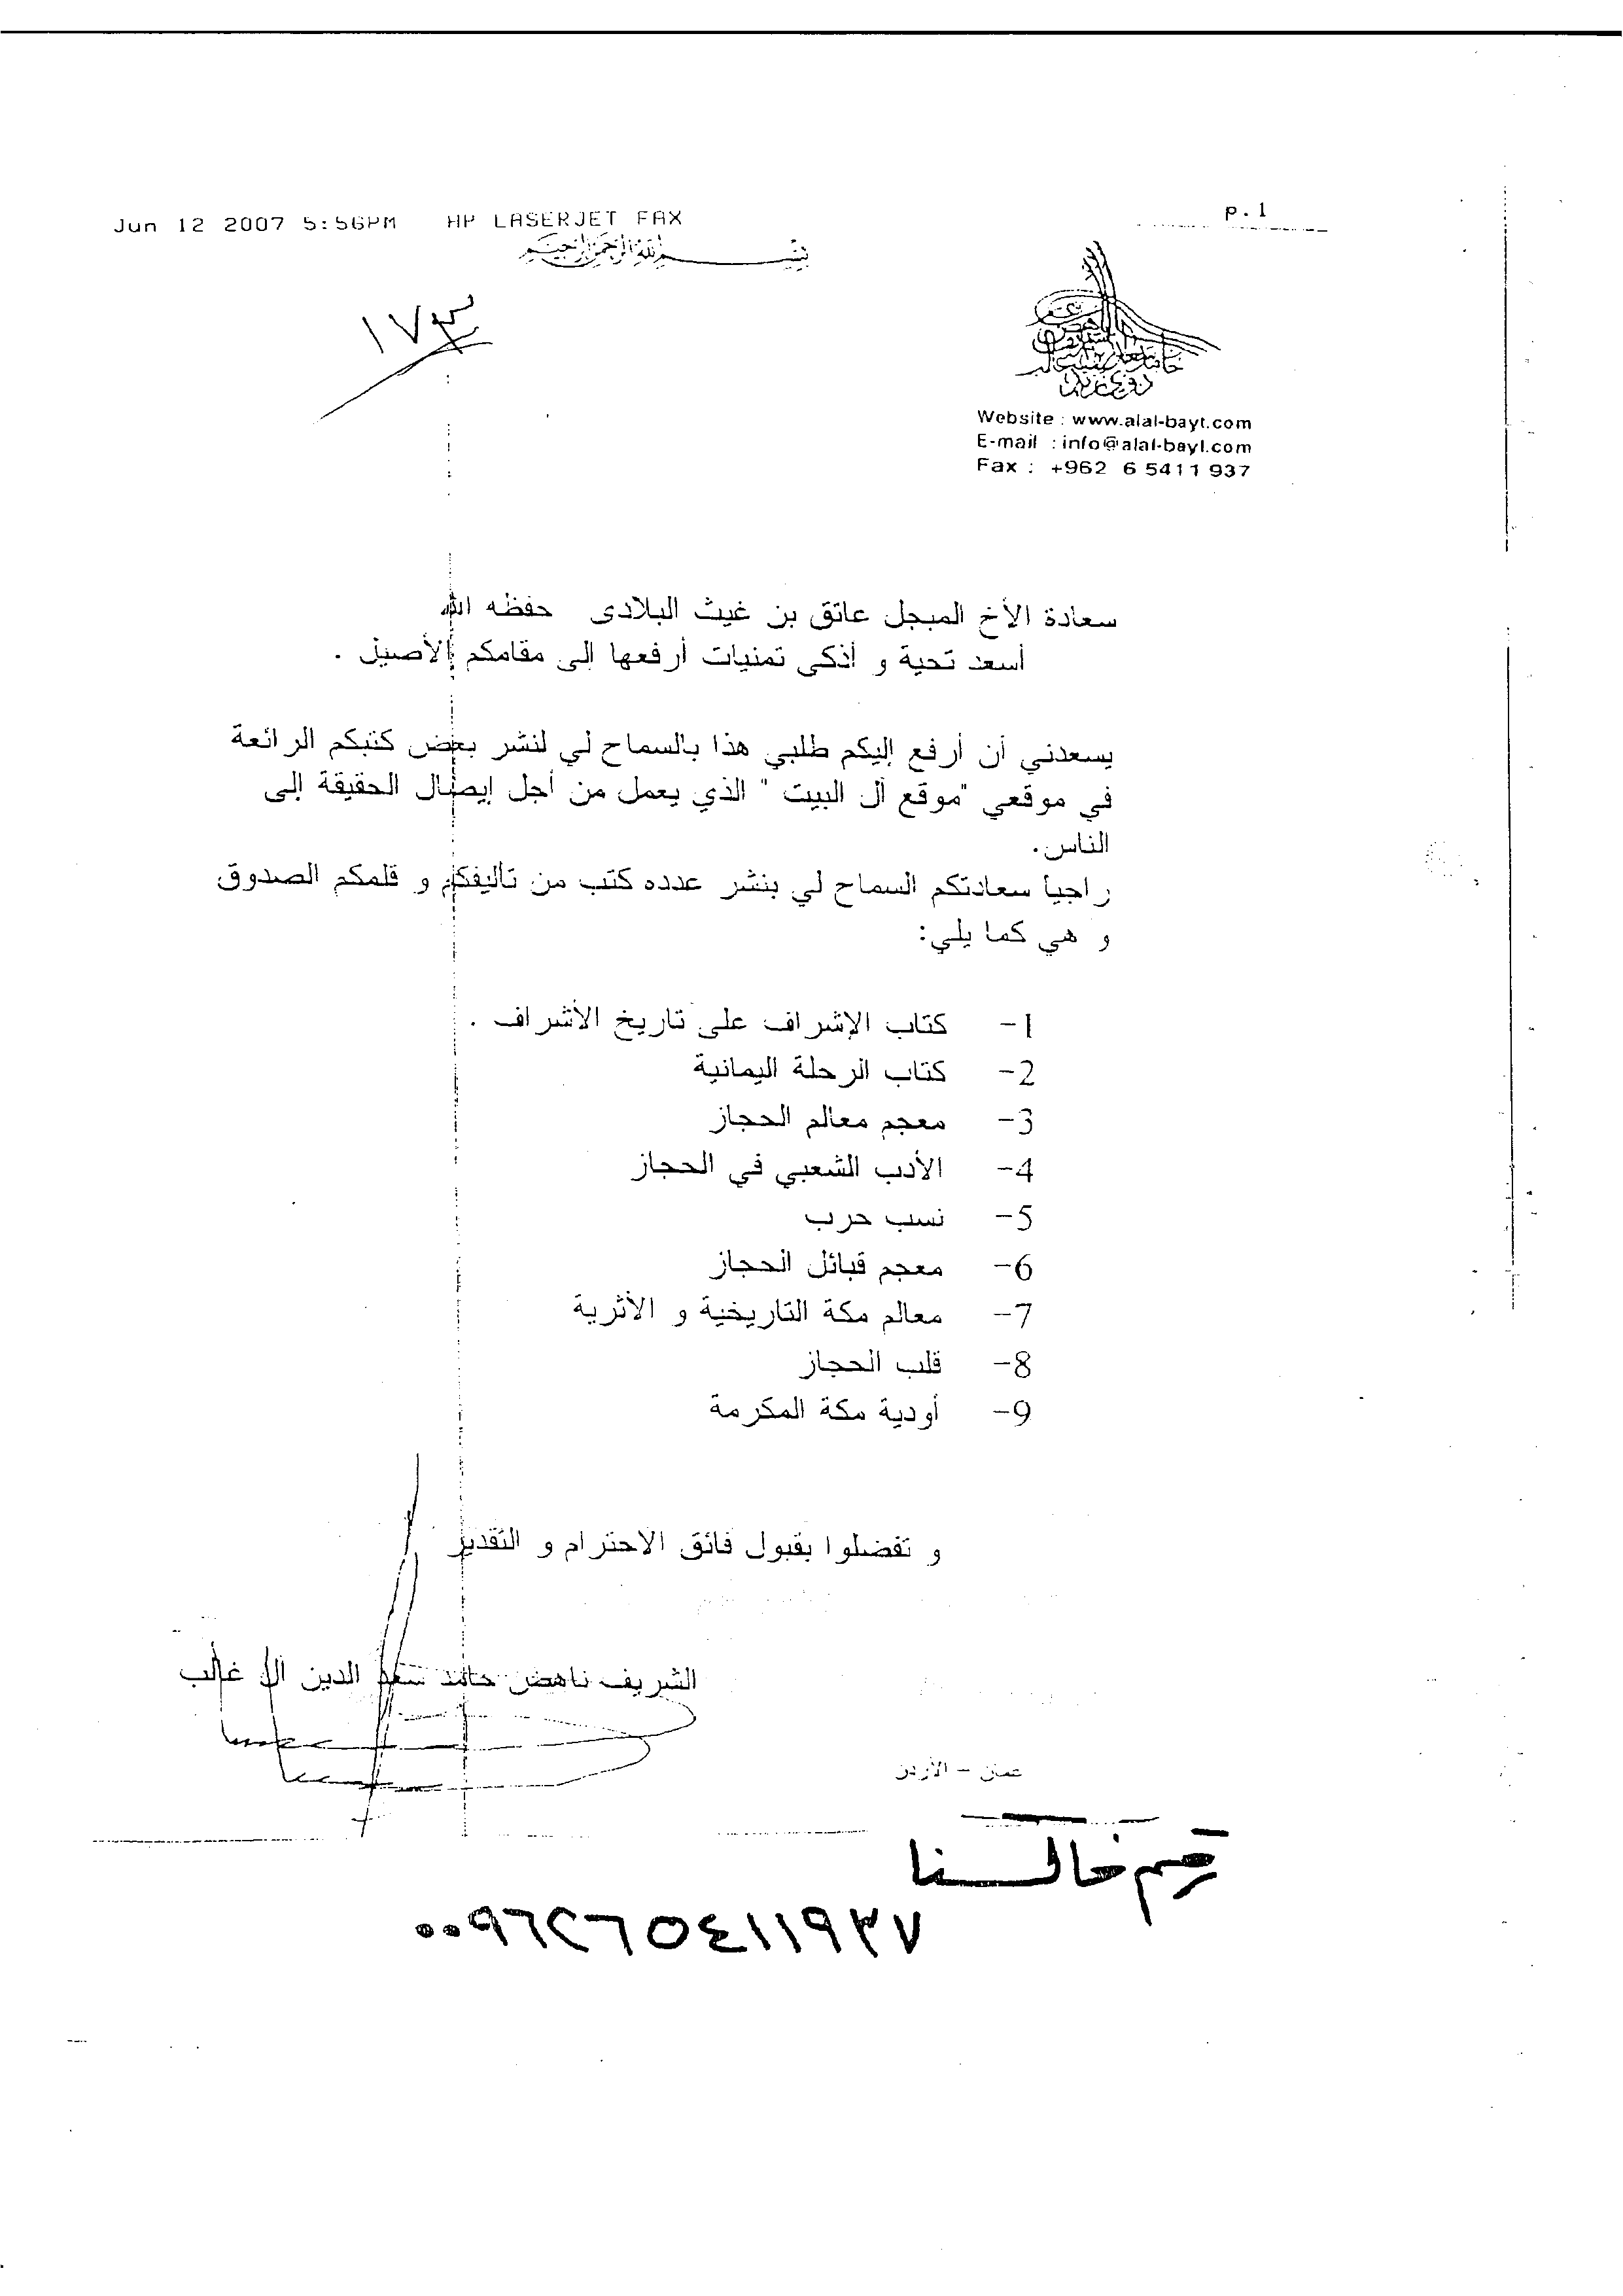 Jun 12 2007 5:56PM HP LASERJET FAX p.1
بسم الله الرحمن الرحيم
١٧٣
Website : www.alal-bayt.com
E-mail : info@alal-bayt.com
Fax : +962 6 5411 937
سعادة الأخ المبجل عاتق بن غيث البلادى حفظه الله
أسعد تحية و أذكى تمنيات أرفعها إلى مقامكم الأصيل .
يسعدني أن أرفع إليكم طلبي هذا بالسماح لي لنشر بعض كتبكم الرائعة
في موقعي "موقع آل البيت " الذي يعمل من أجل إيصال الحقيقة إلى
الناس.
راجيا سعادتكم السماح لي بنشر عدده كتب من تأليفكم و قلمكم الصدوق
و هي كما يلي:
1- كتاب الإشراف على تاريخ الأشراف .
2- كتاب الرحلة اليمانية
3- معجم معالم الحجاز
4- الأدب الشعبي في الحجاز
5- نسب حرب
6- معجم قبائل الحجاز
7- معالم مكة التاريخية و الأثرية
8- قلب الحجاز
9- أودية مكة المكرمة
و تفضلوا بقبول فائق الاحترام و التقدير
الشريف ناهض حامد سعد الدين آل غالب
عمان - الأردن
رقم فاكسنا
٠٠٩٦٢٦٥٤١١٩٣٧